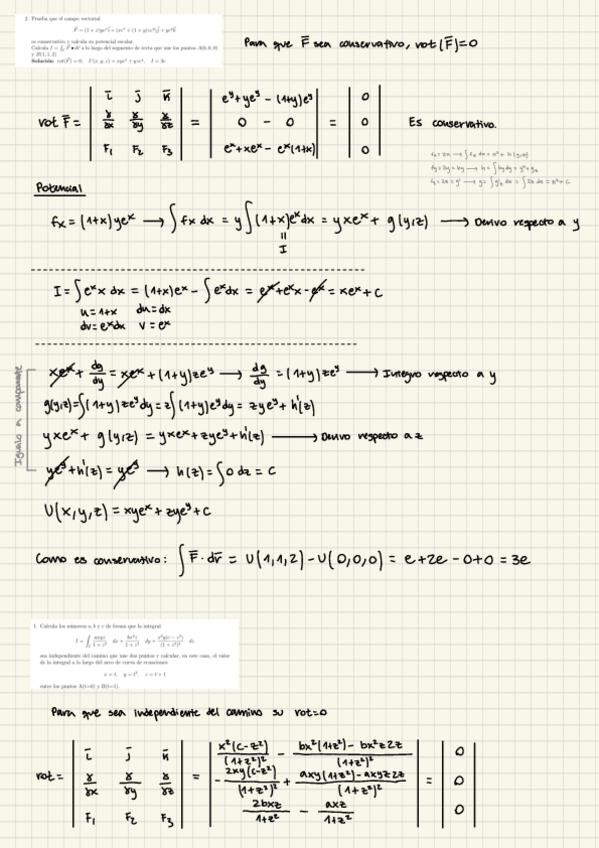 2. Prueba que el campo vectorial
F̄ = (1 + x)yeˣ ī + (xeˣ + (1 + y)zeʸ) j̄ + yeʸ k̄
es conservativo y calcula su potencial escalar.
Calcula I = ∫ F̄ • dr̄ a lo largo del segmento de recta que une los puntos A(0, 0, 0)
y B(1, 1, 2)
Solución: rot(F̄) = 0, U(x, y, z) = xyeˣ + yzeʸ, I = 3e
Para que F̄ sea conservativo, rot(F̄)=0
ī j̄ k̄ eʸ+yeʸ - (1+y)eʸ 0
rot F̄ = ɣ/ɣx ɣ/ɣy ɣ/ɣz = 0 - 0 = 0 Es conservativo.
F₁ F₂ F₃ eˣ+xeˣ - eˣ(1+x) 0
Potencial
fx = (1+x) yeˣ → ∫ fx dx = y ∫ (1+x)eˣ dx = yxeˣ + g(y,z) → Derivo respecto a y
=
I
I = ∫ eˣ x dx = (1+x)eˣ - ∫ eˣ dx = eˣ + eˣx - eˣ = xeˣ + C
u = 1+x du = dx
dv = eˣdx v = eˣ
Igualo a componente
xeˣ + dg/dy = xeˣ + (1+y) zeʸ → dg/dy = (1+y) zeʸ → Integro respecto a y
g(y,z) = ∫ (1+y) zeʸ dy = z ∫ (1+y) eʸ dy = zyeʸ + h'(z)
yxeˣ + g(y,z) = yxeˣ + zyeʸ + h'(z) → Derivo respecto a z
yeʸ + h'(z) = yeʸ → h(z) = ∫ 0 dz = C
U(x,y,z) = xyeˣ + zyeʸ + C
Como es conservativo: ∫ F̄ · dr̄ = U(1,1,2) - U(0,0,0) = e + 2e - 0 + 0 = 3e
1. Calcula los números a, b y c de forma que la integral
sea independiente del camino que une dos puntos y calcular, en este caso, el valor
de la integral a lo largo del arco de curva de ecuaciones
x = t, y = t², z = t + 1
entre los puntos A(t=0) y B(t=1).
Para que sea independiente del camino su rot=0
ī j̄ k̄ x²(c-z²)/(1+z²)² - bx²(1+z²) - bx²z2z/(1+z²)² 0
rot = ɣ/ɣx ɣ/ɣy ɣ/ɣz = - 2xy(c-z²)/(1+z²)² + axy(1+z²) - axyz2z/(1+z²)² = 0
F₁ F₂ F₃ 2bxz/1+z² - axz/1+z² 0